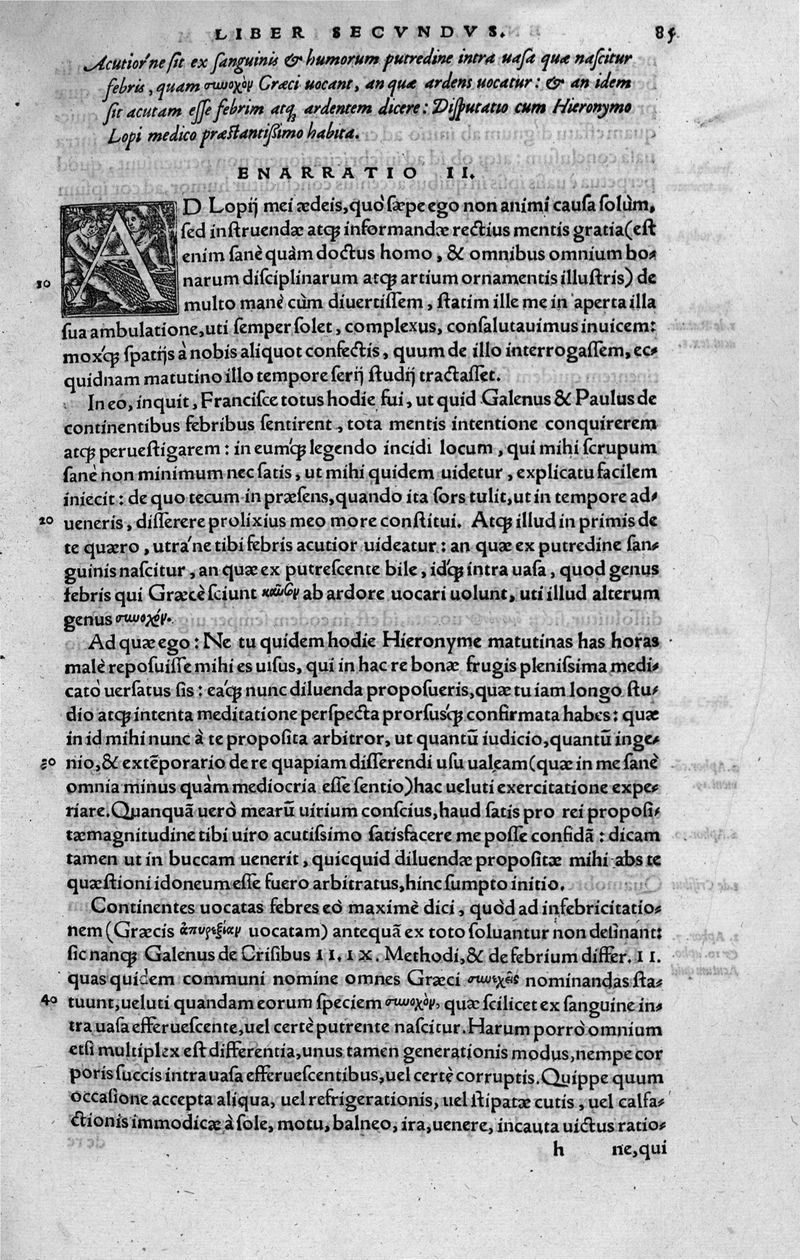 LIBER SECVNDVS. 85
Acutior'ne sit ex sanguinis & humorum putredine intra uasa quæ nascitur
febris, quam σωοχὸν Græci uocant, an quæ ardens uocatur: & an idem
sit acutam esse febrim atq; ardentem dicere: Disputatio cum Hieronymo
Lopi medico præstantissimo habita.
ENARRATIO II.
AD Lopij mei ædeis, quò sæpe ego non animi causa solùm,
sed instruendæ atq; informandæ rectius mentis gratia (est
enim sanè quàm doctus homo, & omnibus omnium bo-
10 narum disciplinarum atq; artium ornamentis illustris) de
multo manè cùm diuertissem, statim ille me in aperta illa
sua ambulatione, uti semper solet, complexus, consalutauimus inuicem:
moxq́; spatijs à nobis aliquot confectis, quum de illo interrogassem, ec-
quidnam matutino illo tempore serij studij tractasset.
In eo, inquit, Francisce totus hodie fui, ut quid Galenus & Paulus de
continentibus febribus sentirent, tota mentis intentione conquirerem
atq; peruestigarem: in eumq́; legendo incidi locum, qui mihi scrupum
sanè non minimum nec satis, ut mihi quidem uidetur, explicatu facilem
iniecit: de quo tecum in præsens, quando ita sors tulit, ut in tempore ad-
20 ueneris, disserere prolixius meo more constitui. Atq; illud in primis de
te quæro, utra'ne tibi febris acutior uideatur: an quæ ex putredine san-
guinis nascitur, an quæ ex putrescente bile, idq́; intra uasa, quod genus
febris qui Græcè sciunt καῦσον ab ardore uocari uolunt, uti illud alterum
genus σωοχόν.
Ad quæ ego: Ne tu quidem hodie Hieronyme matutinas has horas
malè reposuisse mihi es uisus, qui in hac re bonæ frugis plenissima medi-
catò uersatus sis: eaq́; nunc diluenda proposueris, quæ tu iam longo stu-
dio atq; intenta meditatione perspecta prorsusq́; confirmata habes: quæ
in id mihi nunc à te proposita arbitror, ut quantū iudicio, quantū inge-
30 nio, & extēporario de re quapiam disserendi usu ualeam (quæ in me sanè
omnia minus quàm mediocria esse sentio) hac ueluti exercitatione expe-
riare. Quanquā uerò mearū uirium conscius, haud satis pro rei proposi-
tæ magnitudine tibi uiro acutissimo satisfacere me posse confidā: dicam
tamen ut in buccam uenerit, quicquid diluendæ propositæ mihi abs te
quæstioni idoneum esse fuero arbitratus, hinc sumpto initio.
Continentes uocatas febres eò maximè dici, quòd ad infebricitatio-
nem (Græcis ἀπυρεξίαν uocatam) antequā ex toto soluantur non desinant:
sic nanq; Galenus de Crisibus II. IX. Methodi, & de febrium differ. II.
quas quidem communi nomine omnes Græci σωεχεῖς nominandas sta-
40 tuunt, ueluti quandam eorum speciem σωοχὸν, quæ scilicet ex sanguine in-
tra uasa efferuescente, uel certè putrente nascitur. Harum porrò omnium
etsi multiplex est differentia, unus tamen generationis modus, nempe cor
poris succis intra uasa efferuescentibus, uel certè corruptis. Quippe quum
occasione accepta aliqua, uel refrigerationis, uel stipatæ cutis, uel calfa-
ctionis immodicæ à sole, motu, balneo, ira, uenere, incauta uictus ratio-
h ne, qui